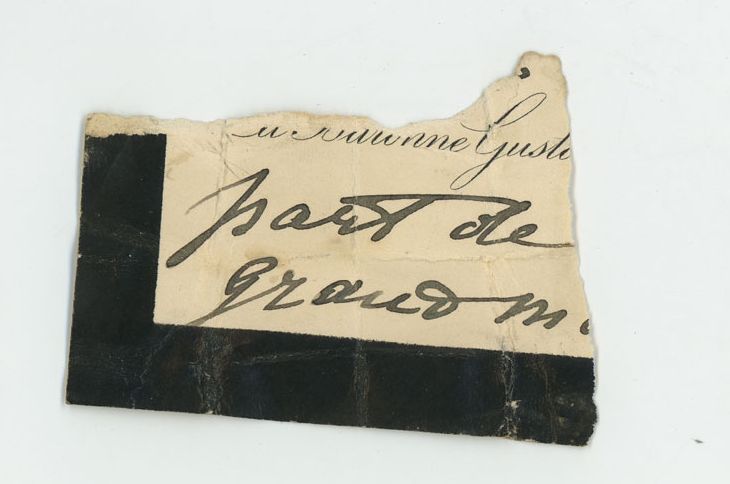 La Baronne Gust
part de
grand m